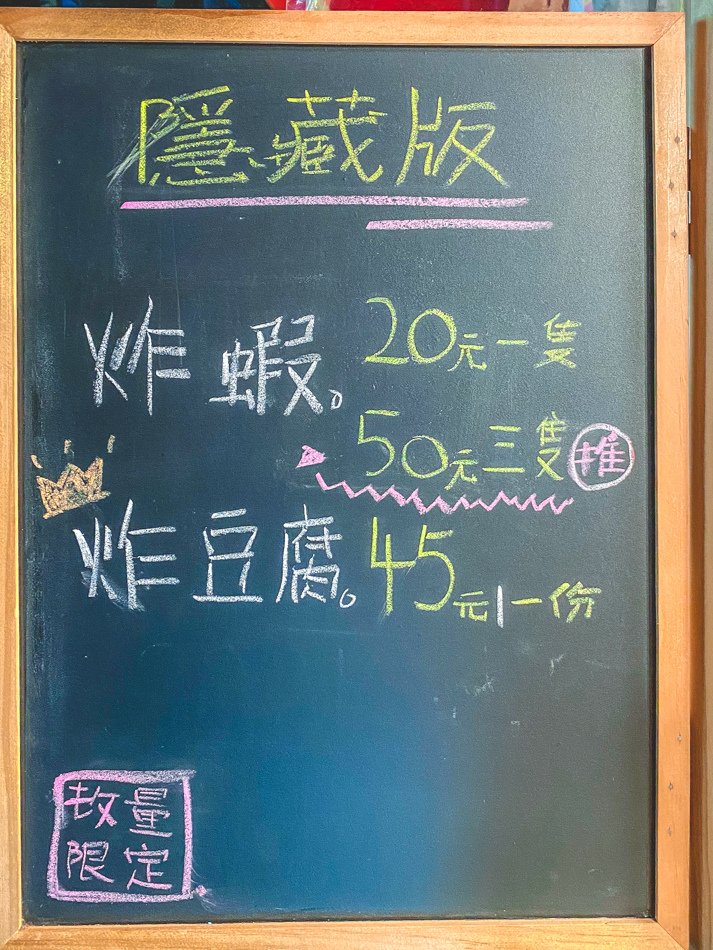 隱藏版
炸蝦。20元一隻
50元三隻 推
炸豆腐。45元|一份
数量
限定